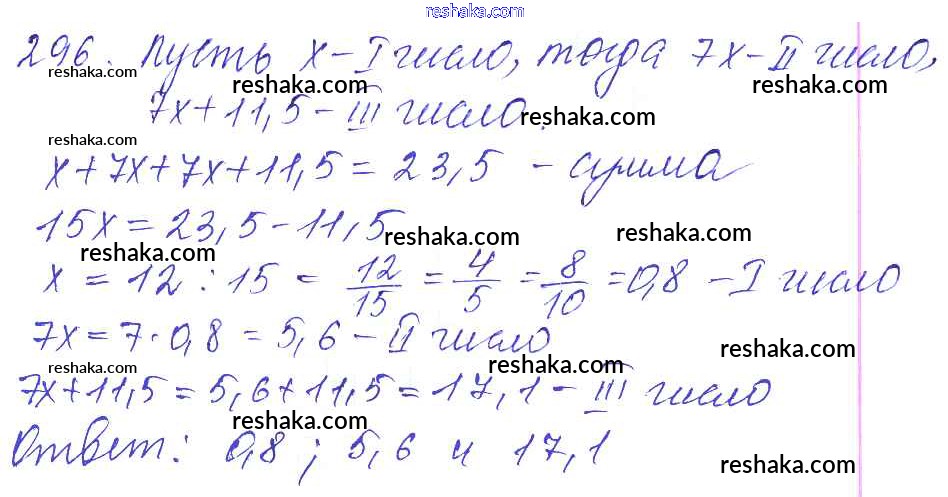 reshaka.com
296. Пусть x – I число, тогда 7x – II число,
reshaka.com reshaka.com reshaka.com
7x + 11,5 – III число.
reshaka.com reshaka.com
x + 7x + 7x + 11,5 = 23,5 – сумма
15x = 23,5 – 11,5
reshaka.com reshaka.com reshaka.com
x = 12 : 15 = 12/15 = 4/5 = 8/10 = 0,8 – I число
7x = 7 · 0,8 = 5,6 – II число
reshaka.com reshaka.com
7x + 11,5 = 5,6 + 11,5 = 17,1 – III число
reshaka.com reshaka.com
Ответ: 0,8 ; 5,6 и 17,1
reshaka.com